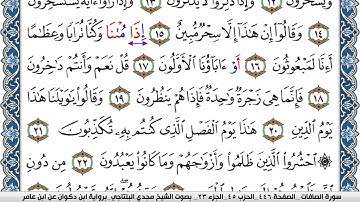 ١٤ وَقَالُوٓا۟ إِنْ هَٰذَآ إِلَّا سِحْرٌ مُّبِينٌ ١٥ إِذَا مُتْنَا وَكُنَّا تُرَابًا وَعِظَٰمًا
أَءِنَّا لَمَبْعُوثُونَ ١٦ أَوْ ءَابَآؤُنَا ٱلْأَوَّلُونَ ١٧ قُلْ نَعَمْ وَأَنتُمْ دَٰخِرُونَ
١٨ فَإِنَّمَا هِىَ زَجْرَةٌ وَٰحِدَةٌ فَإِذَا هُمْ يَنظُرُونَ ١٩ وَقَالُوا۟ يَٰوَيْلَنَا هَٰذَا
يَوْمُ ٱلدِّينِ ٢٠ هَٰذَا يَوْمُ ٱلْفَصْلِ ٱلَّذِى كُنتُم بِهِۦ تُكَذِّبُونَ ٢١
۞ ٱحْشُرُوا۟ ٱلَّذِينَ ظَلَمُوا۟ وَأَزْوَٰجَهُمْ وَمَا كَانُوا۟ يَعْبُدُونَ ٢٢ مِن دُونِ
سورة الصافات .. الصفحة ٤٤٦ .. الحزب ٤٥ .. الجزء ٢٣ .. بصوت الشيخ مجدي البلتاجي .. برواية ابن ذكوان عن ابن عامر